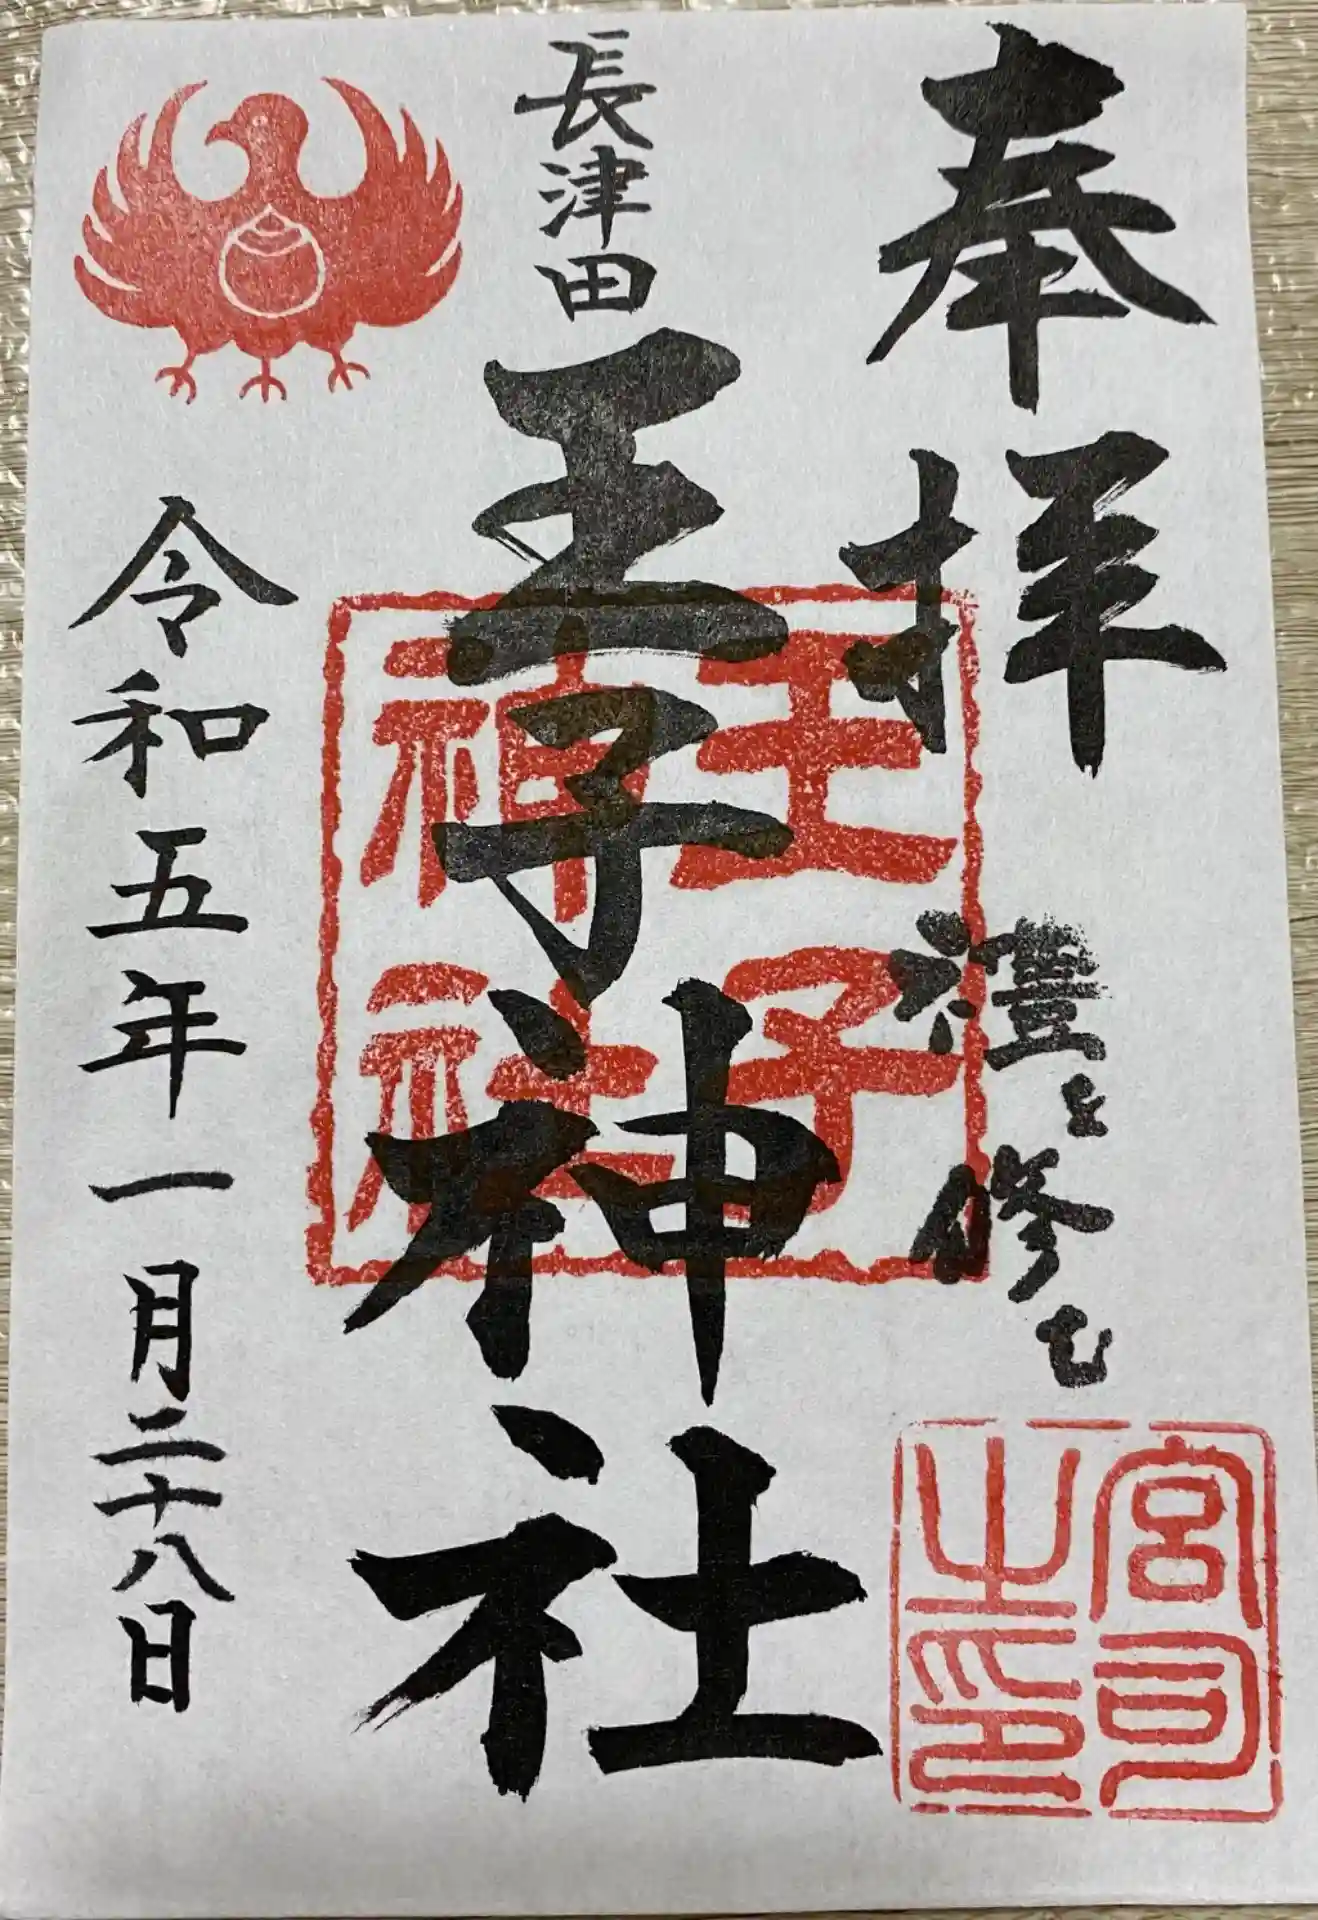 奉拝
禮を修む
宮司
之印
長津田
王子神社
王子
神社
令和五年一月二十八日